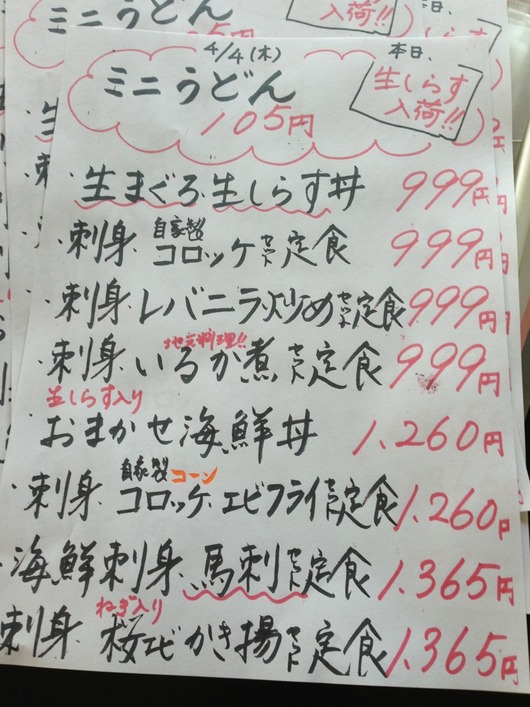 4/4(木)
ミニうどん
105円
本日、
生しらす
入荷!!
・生まぐろ生しらす丼 999円
・刺身 自家製 コロッケセット定食 999円
・刺身 レバニラ炒めセット定食 999円
地元料理!!
・刺身 いるか煮セット定食 999円
生しらす入り
おまかせ海鮮丼 1.260円
自家製 コーン
・刺身 コロッケ、エビフライセット定食 1.260円
海鮮刺身 馬刺セット定食 1.365円
ねぎ入り
刺身 桜エビかき揚セット定食 1.365円